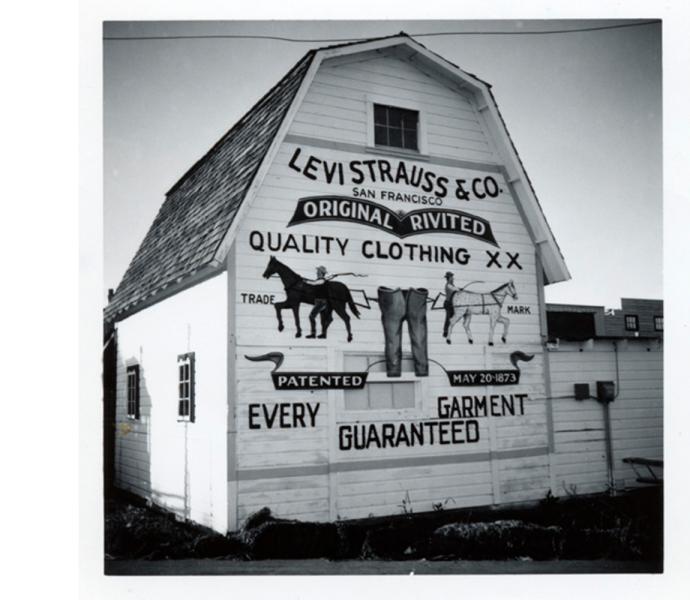 LEVI STRAUSS & CO.
SAN FRANCISCO
ORIGINAL RIVITED
QUALITY CLOTHING XX
TRADE MARK
PATENTED MAY 20 1873
EVERY GARMENT
GUARANTEED